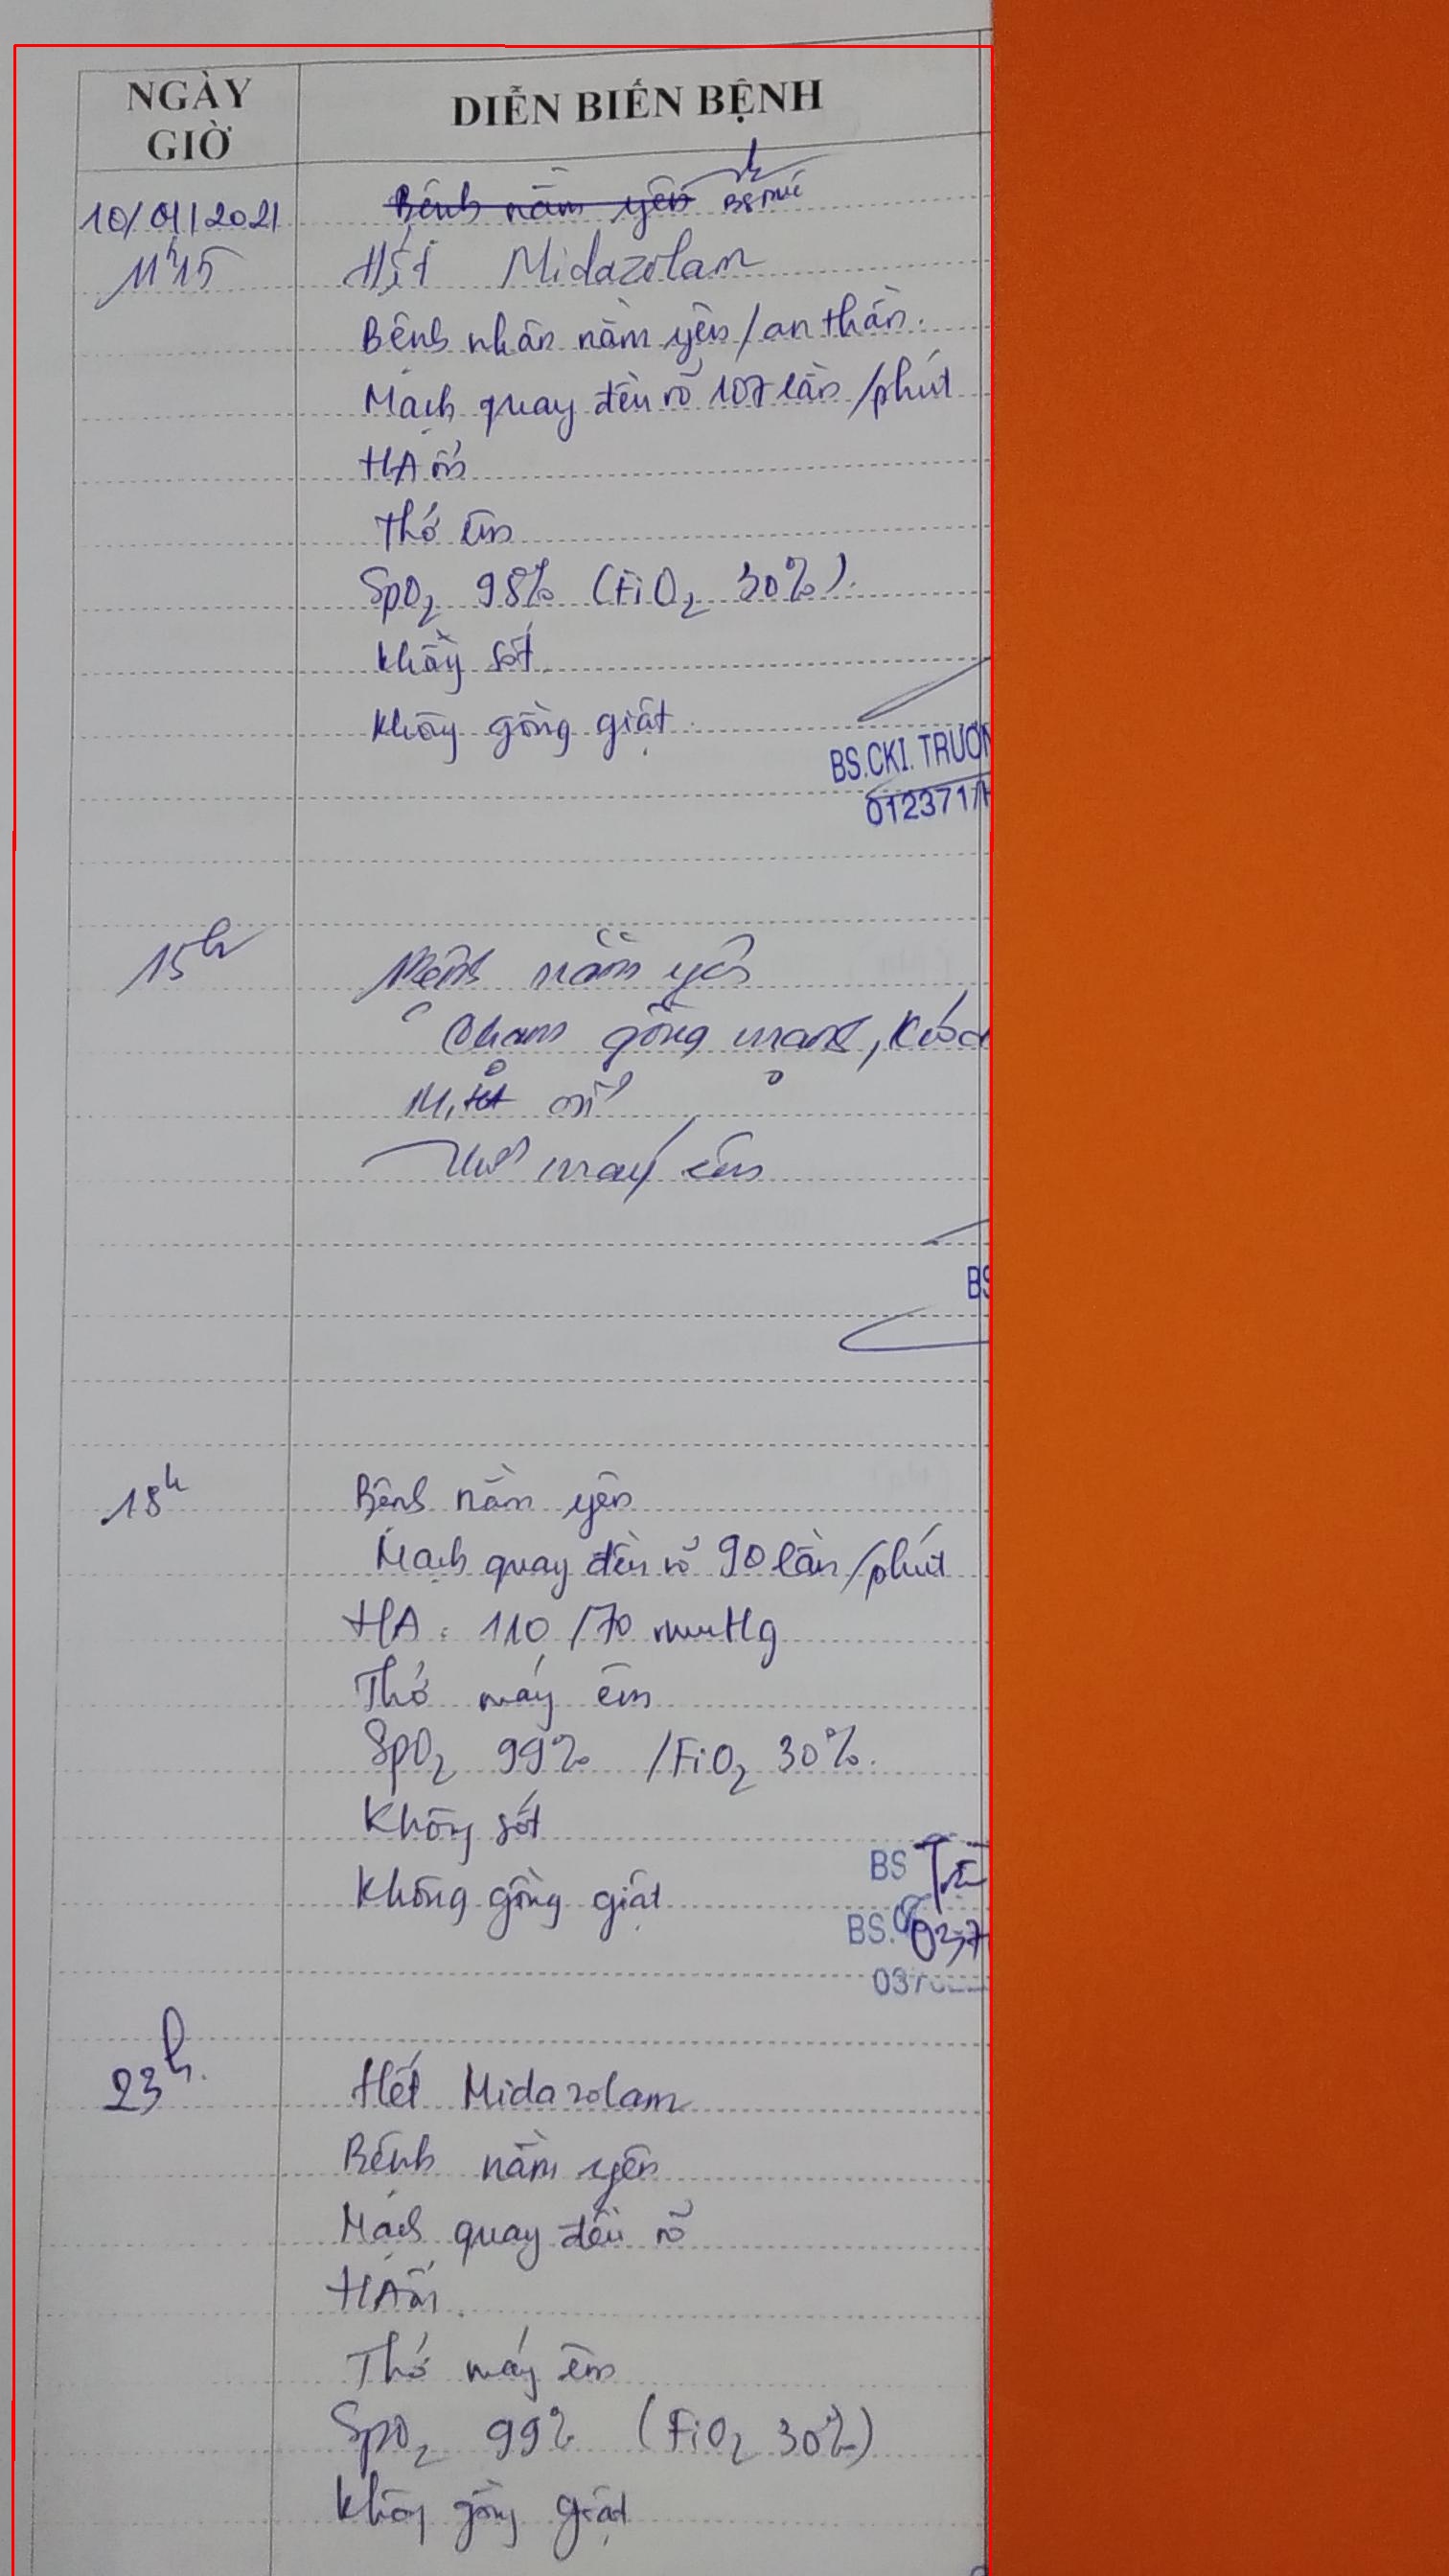 NGÀY
GIỜ
DIỄN BIẾN BỆNH
Bệnh nằm yên
10/01/2021
11h15
Hết Midazolam
Bệnh nhân nằm yên / an thần.
Mạch quay đều rõ 107 lần /phút
HA ổn
Thở êm
SpO2 98% (FiO2 30%).
Không sốt
Không gồng giật
BS.CKI. TRƯƠN
012371/H
15h
Bệnh nằm yên
Chạm gồng mạnh,
M, ổn
Thở máy êm
BS
18h
Bệnh nằm yên
Mạch quay đều rõ 90 lần/phút
HA: 110 /70 mmHg
Thở máy êm
SpO2 99% /FiO2 30%.
Không sốt
Không gồng giật
BS
BS.
037
23h.
Hết Midazolam
Bệnh nằm yên
Mạch quay đều rõ
HA ổn
Thở máy êm
SpO2 99% (FiO2 30%)
Không gồng giật